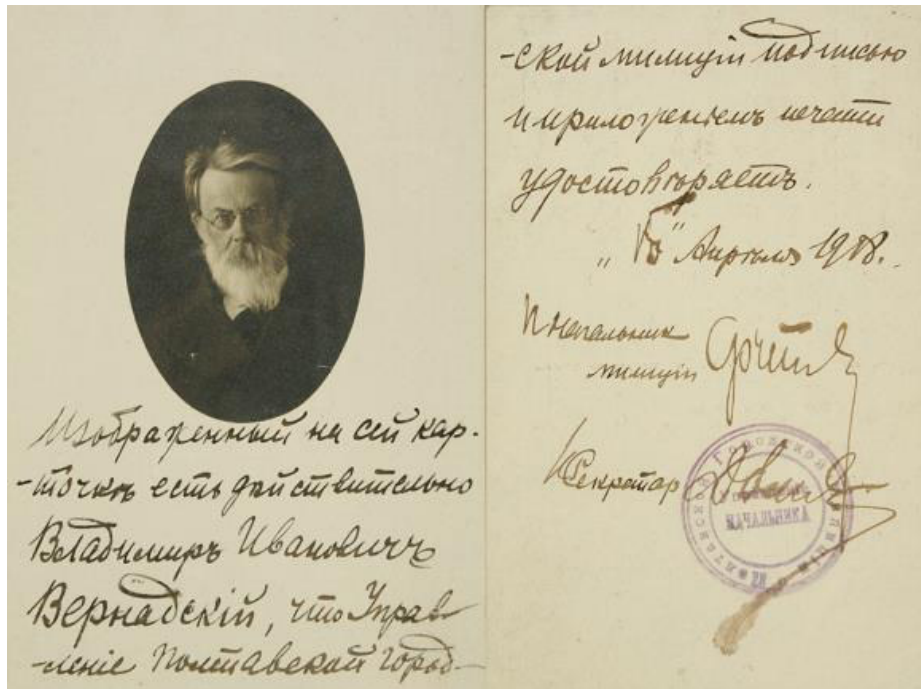 Изображенный на сей кар-
-точкѣ есть действительно
Владимиръ Ивановичъ
Вернадскій, что Управ-
-леніе Полтавской город-
-ской милиціи подписью
и приложеніемъ печати
удостовѣряетъ.
" " Апрѣля 1918.
Начальник
милиціи
Секретар
Полтавской Городской Милиціи
НАЧАЛЬНИКА